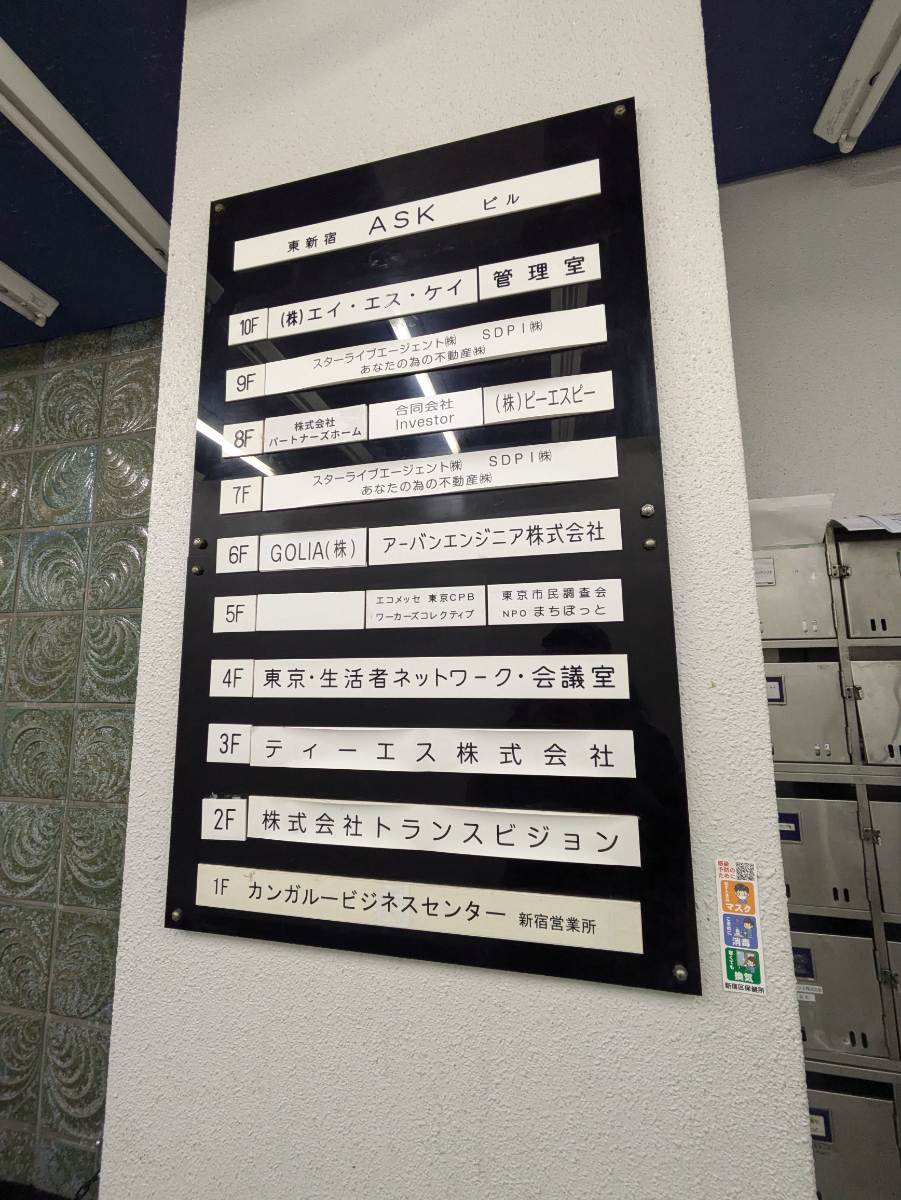 東新宿 ASK ビル
10F (株)エイ・エス・ケイ 管理室
9F スターライブエージェント㈱ SDPI㈱
あなたの為の不動産㈱
8F 株式会社
パートナーズホーム
合同会社
Investor
(株)ピーエスピー
7F スターライブエージェント㈱ SDPI㈱
あなたの為の不動産㈱
6F GOLIA(株) アーバンエンジニア株式会社
5F エコメッセ 東京CPB
ワーカーズコレクティブ
東京市民調査会
NPO まちぽっと
4F 東京・生活者ネットワーク・会議室
3F ティーエス株式会社
2F 株式会社トランスビジョン
1F カンガルービジネスセンター 新宿営業所
感染
予防の
ために
マスク
消毒
換気
新宿区保健所